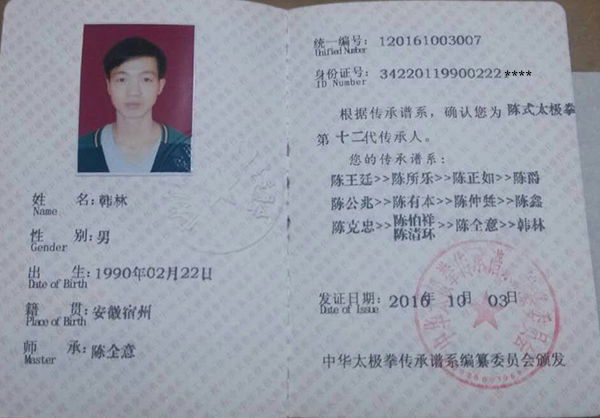 姓 名:韩林
Name
性 别:男
Gender
出 生:1990年02月22日
Date of Birth
籍 贯:安徽宿州
Place of Birth
师 承:陈全意
Master
统一编号:120161003007
Unified Number
身份证号:34220119900222****
ID Number
根据传承谱系,确认您为 陈式太极拳
第 十二代传承人。
您的传承谱系:
陈王廷>>陈所乐>>陈正如>>陈爵
陈公兆>>陈有本>>陈仲甡>>陈鑫
陈克忠>>陈伯祥 陈清环>>陈全意>>韩林
发证日期:2016年 10月 03日
Date of Issue
中华太极拳传承谱系编纂委员会颁发